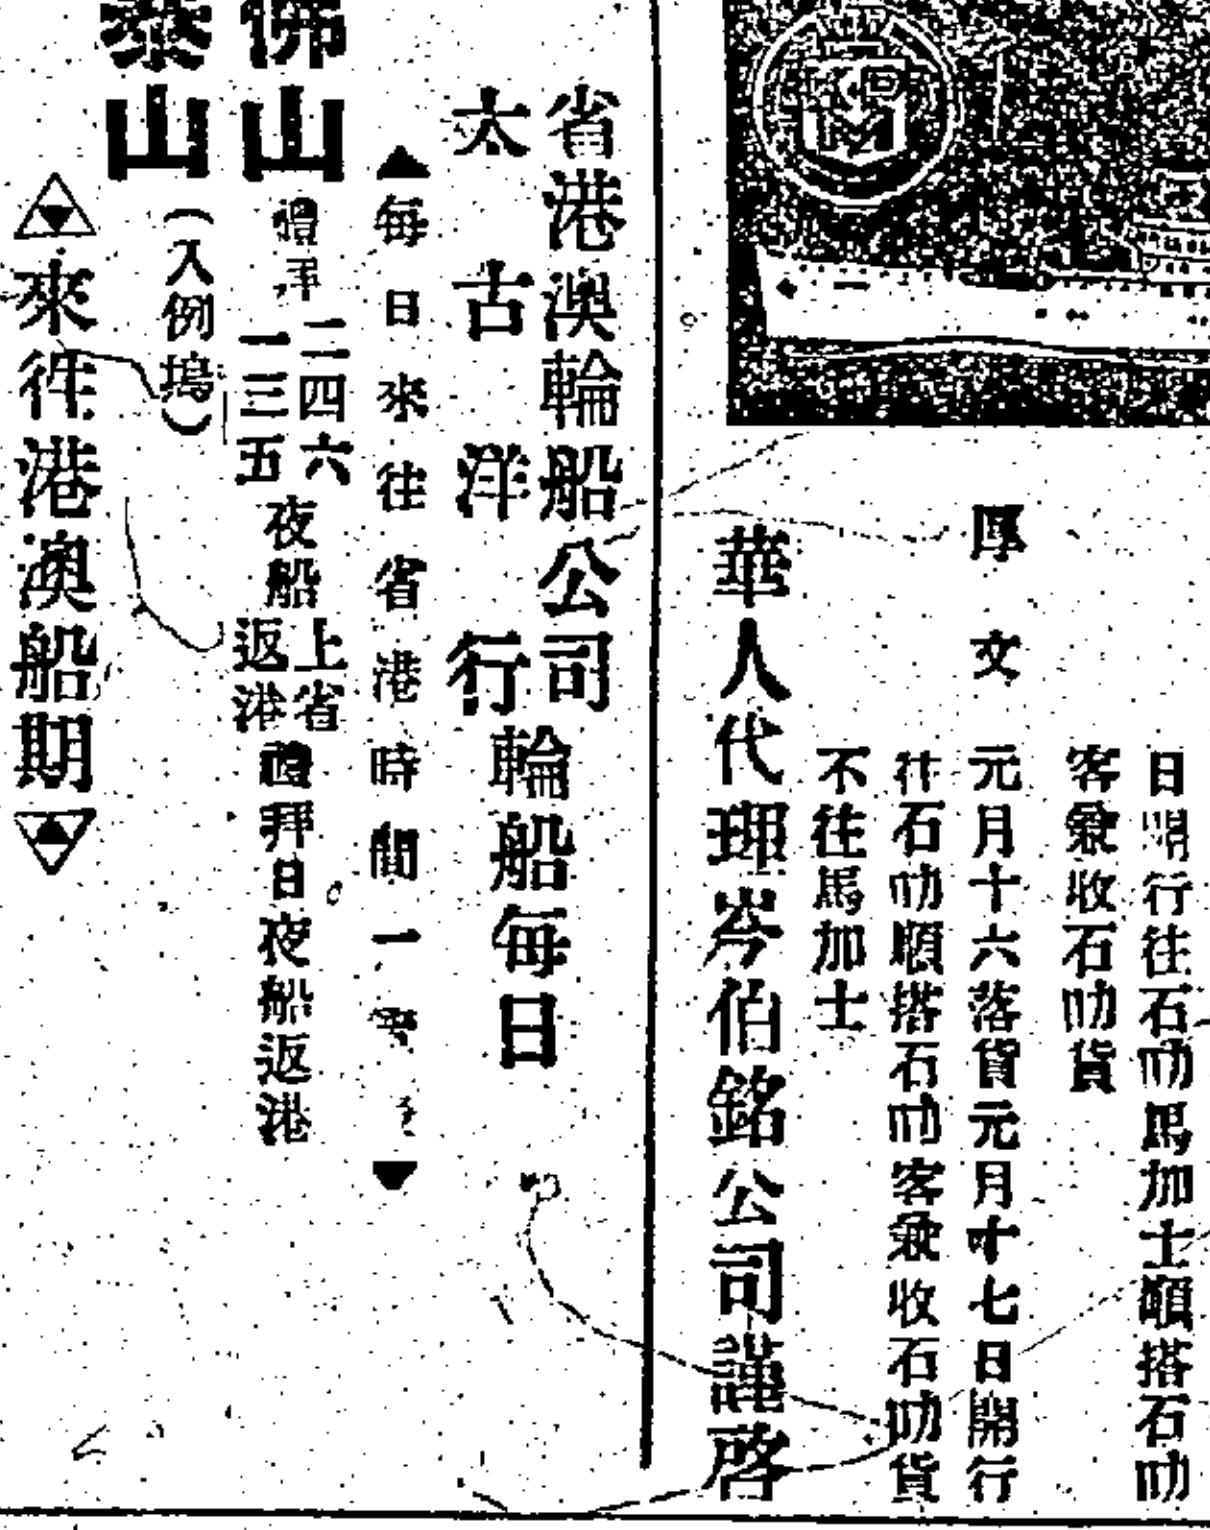 日開行往石叻馬加士順搭石叻
客兼收石叻貨
厚文 元月十六落貨元月十七日開行
往石叻順搭石叻客兼收石叻貨
不往馬加士
華人代理岑伯銘公司謹啓
省港澳輪船公司
太古洋行
輪船每日
▲每日來往省港時間一
佛山 禮拜
二四六
一三五
夜船
上省
返港
禮拜日夜船返港
泰山 (入例塢)
來往港澳船期